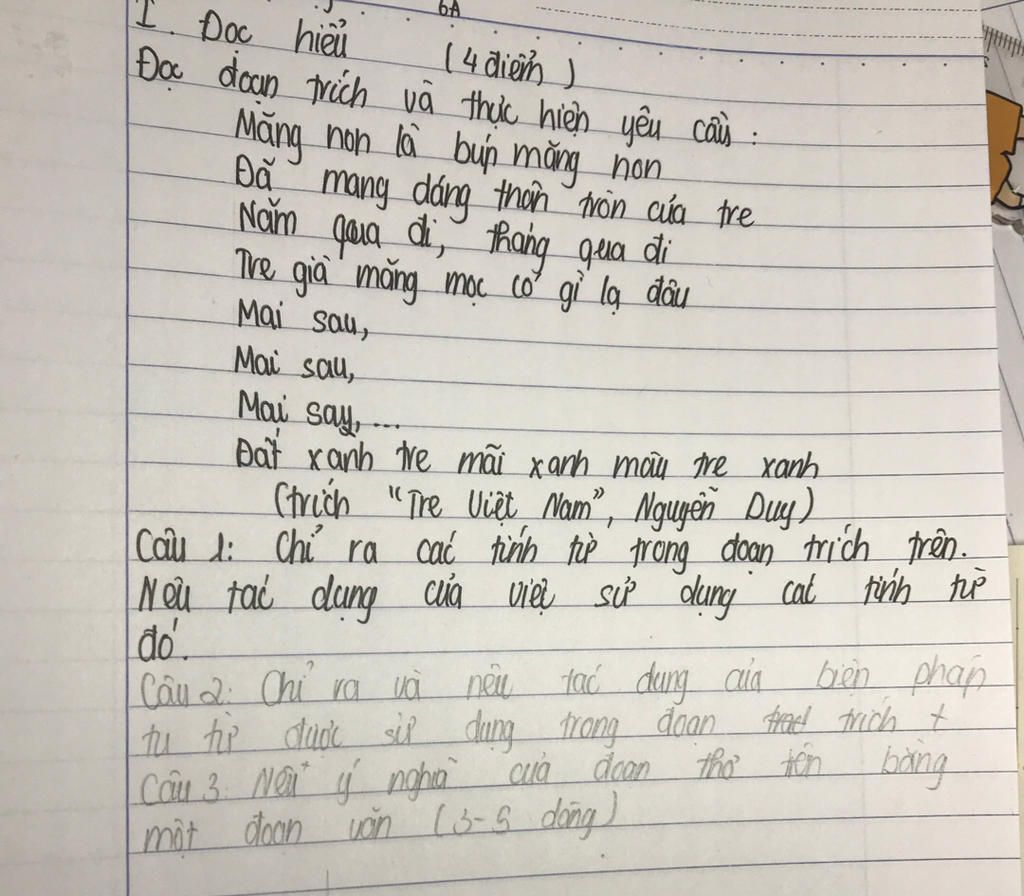 6A
I. Đọc hiểu (4 điểm)
Đọc đoạn trích và thực hiện yêu cầu:
Măng non là búp măng non
Đã mang dáng thân tròn của tre
Năm qua đi, tháng qua đi
Tre già măng mọc có gì lạ đâu
Mai sau,
Mai sau,
Mai say,...
Đất xanh tre mãi xanh màu tre xanh
(trích "Tre Việt Nam", Nguyễn Duy)
Câu 1: Chỉ ra các tính từ trong đoạn trích trên.
Nêu tác dụng của việc sử dụng các tính từ
đó.
Câu 2: Chỉ ra và nêu tác dụng của biện pháp
tu từ được sử dụng trong đoạn trích t
Câu 3: Nêu ý nghĩa của đoạn thơ tên bằng
một đoạn văn (3-5 dòng)